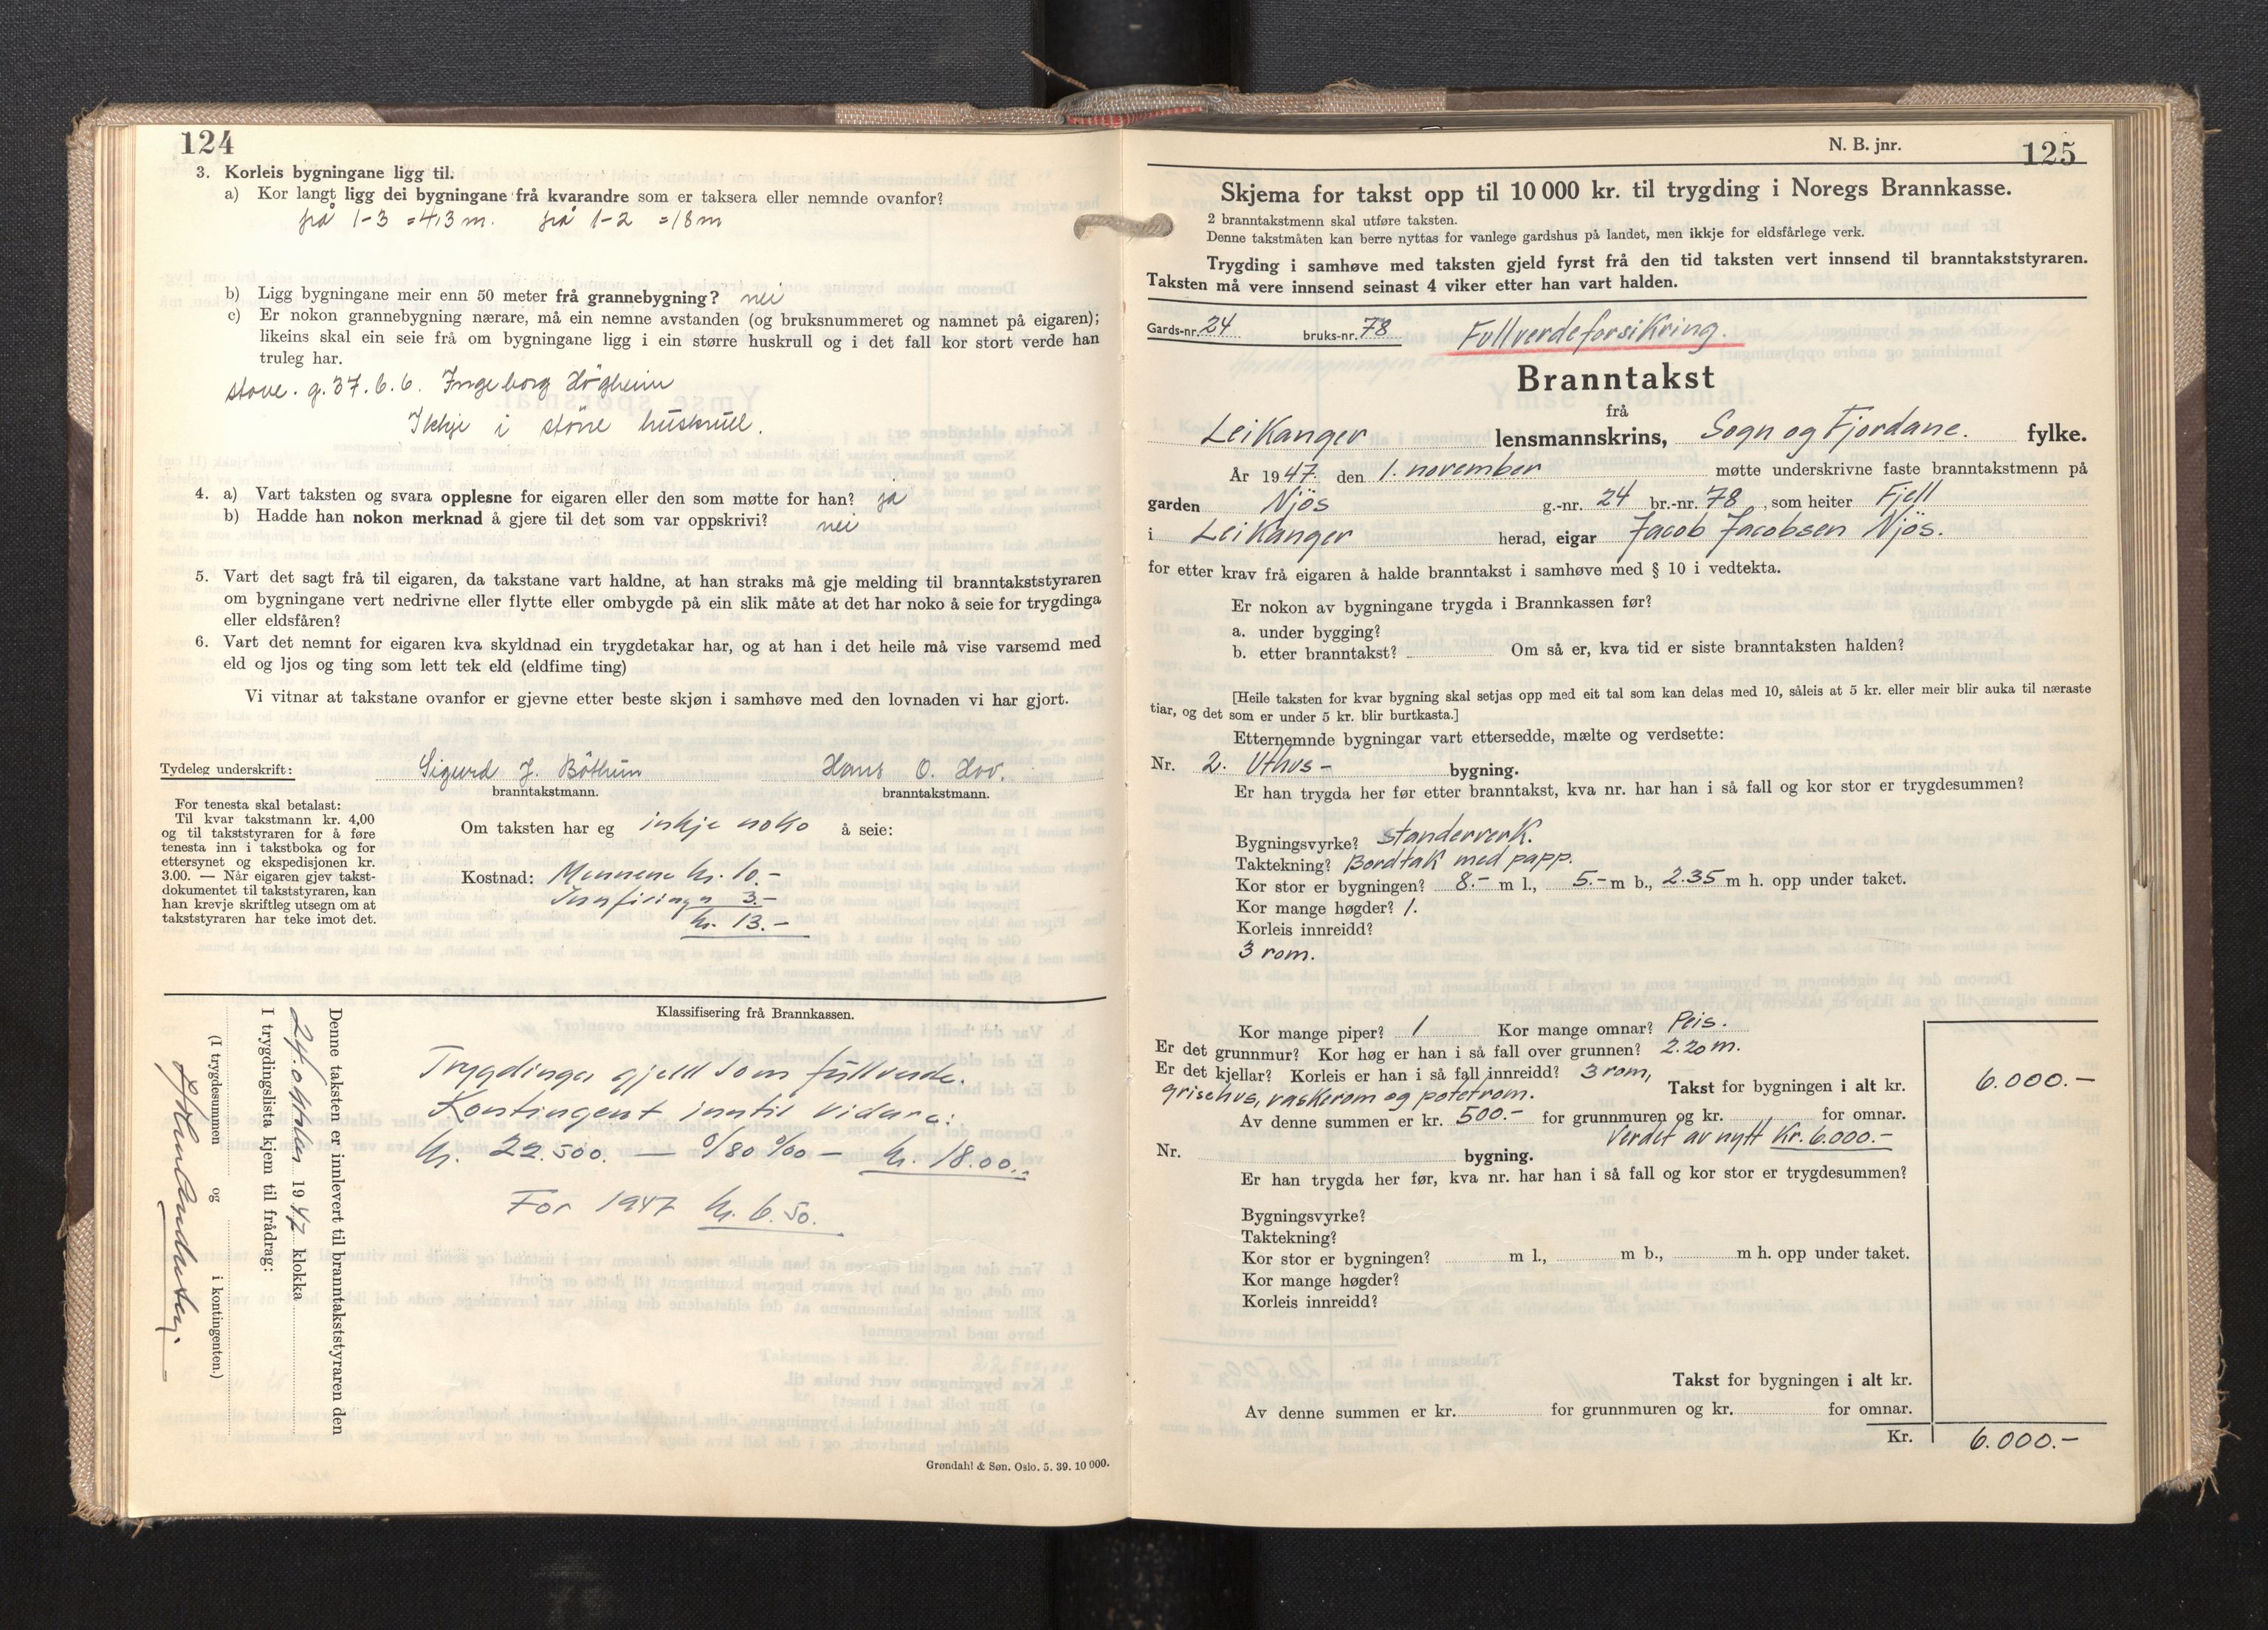 124
3. Korleis bygningane ligg til.
a) Kor langt ligg dei bygningane frå kvarandre som er taksera eller nemnde ovanfor?
frå 1-3 = 4,3 m. frå 1-2 = 18 m
b) Ligg bygningane meir enn 50 meter frå grannebygning? nei
c) Er nokon grannebygning nærare, må ein nemne avstanden (og bruksnummeret og namnet på eigaren);
likeins skal ein seie frå om bygningane ligg i ein større huskrull og i det fall kor stort verde han
truleg har.
stove. g. 37. b. 6. Ingeborg Högheim
Ikkje i störe huskrull.
4. a) Vart taksten og svara opplesne for eigaren eller den som møtte for han? ja
b) Hadde han nokon merknad å gjere til det som var oppskrivi? nei
5. Vart det sagt frå til eigaren, da takstane vart haldne, at han straks må gje melding til branntakststyraren
om bygningane vert nedrivne eller flytte eller ombygde på ein slik måte at det har noko å seie for trygdinga
eller eldsfåren?
6. Vart det nemnt for eigaren kva skyldnad ein trygdetakar har, og at han i det heile må vise varsemd med
eld og ljos og ting som lett tek eld (eldfime ting)
Vi vitnar at takstane ovanfor er gjevne etter beste skjøn i samhøve med den lovnaden vi har gjort.
Tydeleg underskrift: Sigurd J. Böthun Hans O. Hov.
branntakstmann. branntakstmann.
For tenesta skal betalast:
Til kvar takstmann kr. 4,00
og til takststyraren for å føre
tenesta inn i takstboka og for
ettersynet og ekspedisjonen kr.
3.00. — Når eigaren gjev takst-
dokumentet til takststyraren, kan
han krevje skriftleg utsegn om at
takststyraren har teke imot det.
Om taksten har eg inkje noko å seie:
Kostnad: Mennene kr. 10.-
Innføring " 3.-
kr. 13.-
Klassifisering frå Brannkassen.
Trygdinga gjeld som fullverde.
Kontingent inntil vidare:
kr. 22.500. — 0/80 ‰ — kr. 18.00.
For 1947 kr. 6.50.
Denne taksten er innlevert til branntakststyraren den
24. oktober 1947 klokka
I trygdingslista kjem til frådrag:
(I trygdesummen og i kontingenten.)
Grøndahl & Søn. Oslo. 5. 39. 10 000.
N. B. jnr. 125
Skjema for takst opp til 10 000 kr. til trygding i Noregs Brannkasse.
2 branntakstmenn skal utføre taksten.
Denne takstmåten kan berre nyttas for vanlege gardshus på landet, men ikkje for eldsfårlege verk.
Trygding i samhøve med taksten gjeld fyrst frå den tid taksten vert innsend til branntakststyraren.
Taksten må vere innsend seinast 4 viker etter han vart halden.
Gards-nr. 24 bruks-nr. 78 Fullverdeforsikring.
Branntakst
frå
Leikanger lensmannskrins, Sogn og Fjordane. fylke.
År 1947 den 1. november møtte underskrivne faste branntakstmenn på
garden Njös g.-nr. 24 br.-nr. 78, som heiter Fjell
i Leikanger herad, eigar Jacob Jacobsen Njös.
for etter krav frå eigaren å halde branntakst i samhøve med § 10 i vedtekta.
Er nokon av bygningane trygda i Brannkassen før?
a. under bygging?
b. etter branntakst? Om så er, kva tid er siste branntaksten halden?
[Heile taksten for kvar bygning skal setjas opp med eit tal som kan delas med 10, såleis at 5 kr. eller meir blir auka til næraste
tiar, og det som er under 5 kr. blir burtkasta.]
Etternemnde bygningar vart ettersedde, mælte og verdsette:
Nr. 2. Uthus - bygning.
Er han trygda her før etter branntakst, kva nr. har han i så fall og kor stor er trygdesummen?
Bygningsvyrke? standerverk.
Taktekning? Bordtak med papp.
Kor stor er bygningen? 8.- m l., 5.- m b., 2.35 m h. opp under taket.
Kor mange høgder? 1.
Korleis innreidd?
3 rom.
Kor mange piper? 1 Kor mange omnar? Peis.
Er det grunnmur? Kor høg er han i så fall over grunnen? 2.20 m.
Er det kjellar? Korleis er han i så fall innreidd? 3 rom,
grisehus, vaskerom og potetrom. Takst for bygningen i alt kr. 6.000.-
Av denne summen er kr. 500.- for grunnmuren og kr. for omnar.
Verdet av nytt Kr. 6.000.-
Nr. bygning.
Er han trygda her før, kva nr. har han i så fall og kor stor er trygdesummen?
Bygningsvyrke?
Taktekning?
Kor stor er bygningen? m l., m b., m h. opp under taket.
Kor mange høgder?
Korleis innreidd?
Takst for bygningen i alt kr.
Av denne summen er kr. for grunnmuren og kr. for omnar.
Kr. 6.000.-